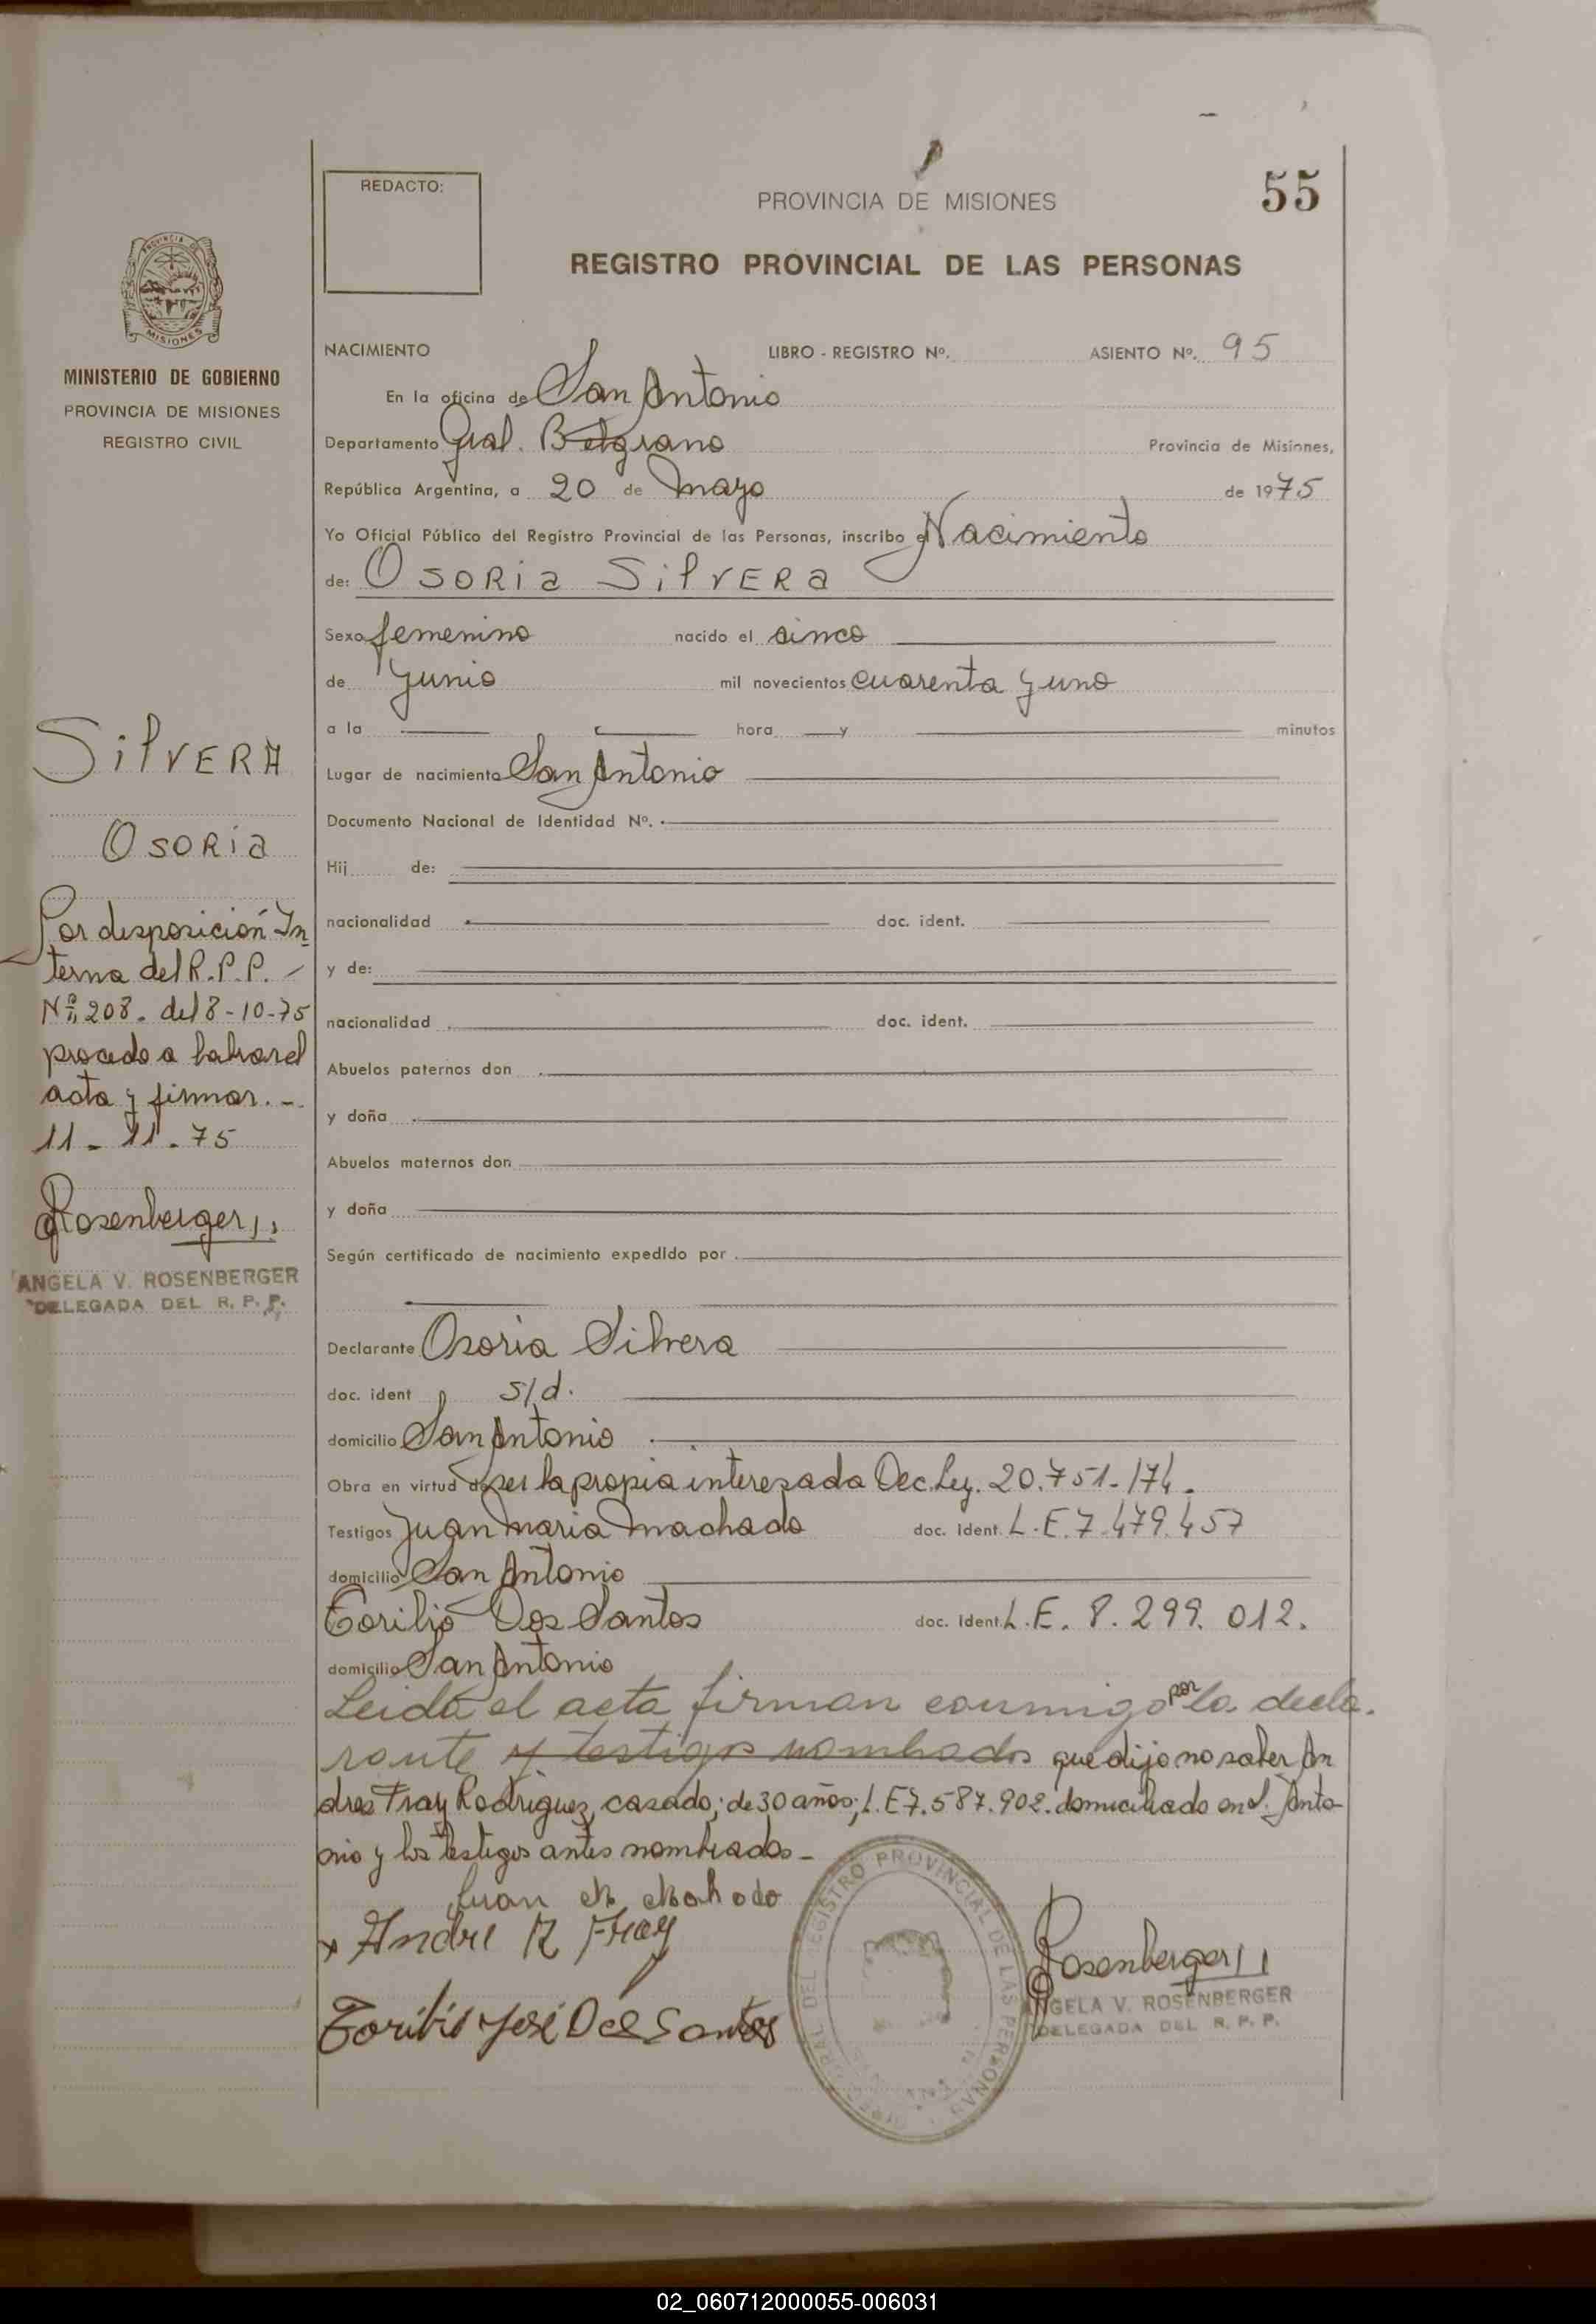 REDACTO:
PROVINCIA DE MISIONES
55
REGISTRO PROVINCIAL DE LAS PERSONAS
PROVINCIA DE
MISIONES
MINISTERIO DE GOBIERNO
PROVINCIA DE MISIONES
REGISTRO CIVIL
SilVERA
OSORia
Por disposición In
terna del R.P.P.
Nº 208. del 8-10-75
procedo a labrar el
acta y firmar.-
11-11-75
Rosenberger
ANGELA V. ROSENBERGER
DELEGADA DEL R. P. P.
NACIMIENTO LIBRO - REGISTRO Nº. ASIENTO Nº. 95
En la oficina de San Antonio
Departamento Gral. Belgrano Provincia de Misiones,
República Argentina, a 20 de Mayo de 1975
Yo Oficial Público del Registro Provincial de las Personas, inscribo el Nacimiento
de: OSORia SilVERa
Sexo femenino nacido el cinco
de Junio mil novecientos cuarenta y uno
a la hora y minutos
Lugar de nacimiento San Antonio
Documento Nacional de Identidad Nº.
Hij de:
nacionalidad doc. ident.
y de:
nacionalidad doc. ident.
Abuelos paternos don
y doña
Abuelos maternos don
y doña
Según certificado de nacimiento expedido por
Declarante Osoria Silvera
doc. ident s/d.
domicilio San Antonio
Obra en virtud de ser la propia interesada Dec. Ley. 20.751-/74.
Testigos Juan Maria Machado doc. ident. L.E.7.479.457
domicilio San Antonio
Toribio Dos Santos doc. ident. L.E. 8.299.012.
domicilio San Antonio
Leida el acta firman conmigo por la decla-
rante y testigos nombrados que dijo no saber An
dres Fray Rodriguez, casado; de 30 años; L.E7.587.902. domiciliado en S. Anto-
nio y los testigos antes nombrados-
Juan M Machado
x Andre R Fray
Toribio José Dos Santos
REGISTRO PROVINCIAL DE LAS PERSONAS
Rosenberger
ANGELA V. ROSENBERGER
DELEGADA DEL R. P. P.
02_060712000055-006031